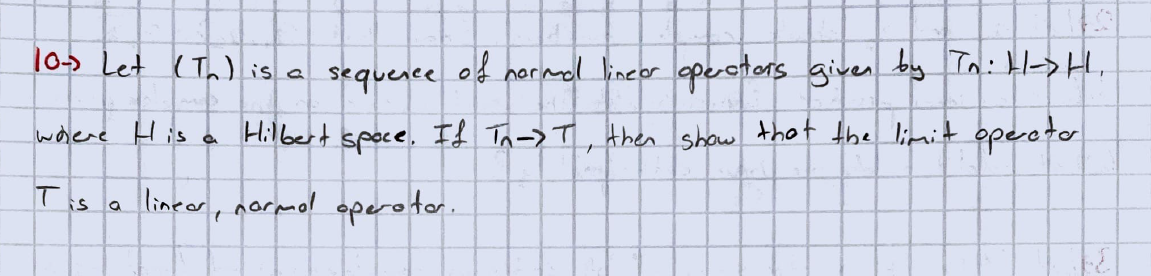 10→ Let (Tn) is a sequence of normal linear operators given by Tn: H→H,
where H is a Hilbert space. If Tn→T, then show that the limit operator
T is a linear, normal operator.